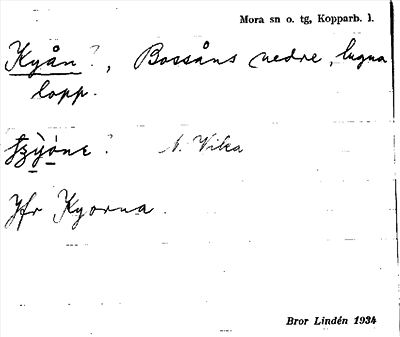 Mora sn o. tg, Kopparb. l.
Kyån?, Bossåns nedre, lugna
lopp.
tzyóne? N. Vika
Jfr Kyorna.
Bror Lindén 1934